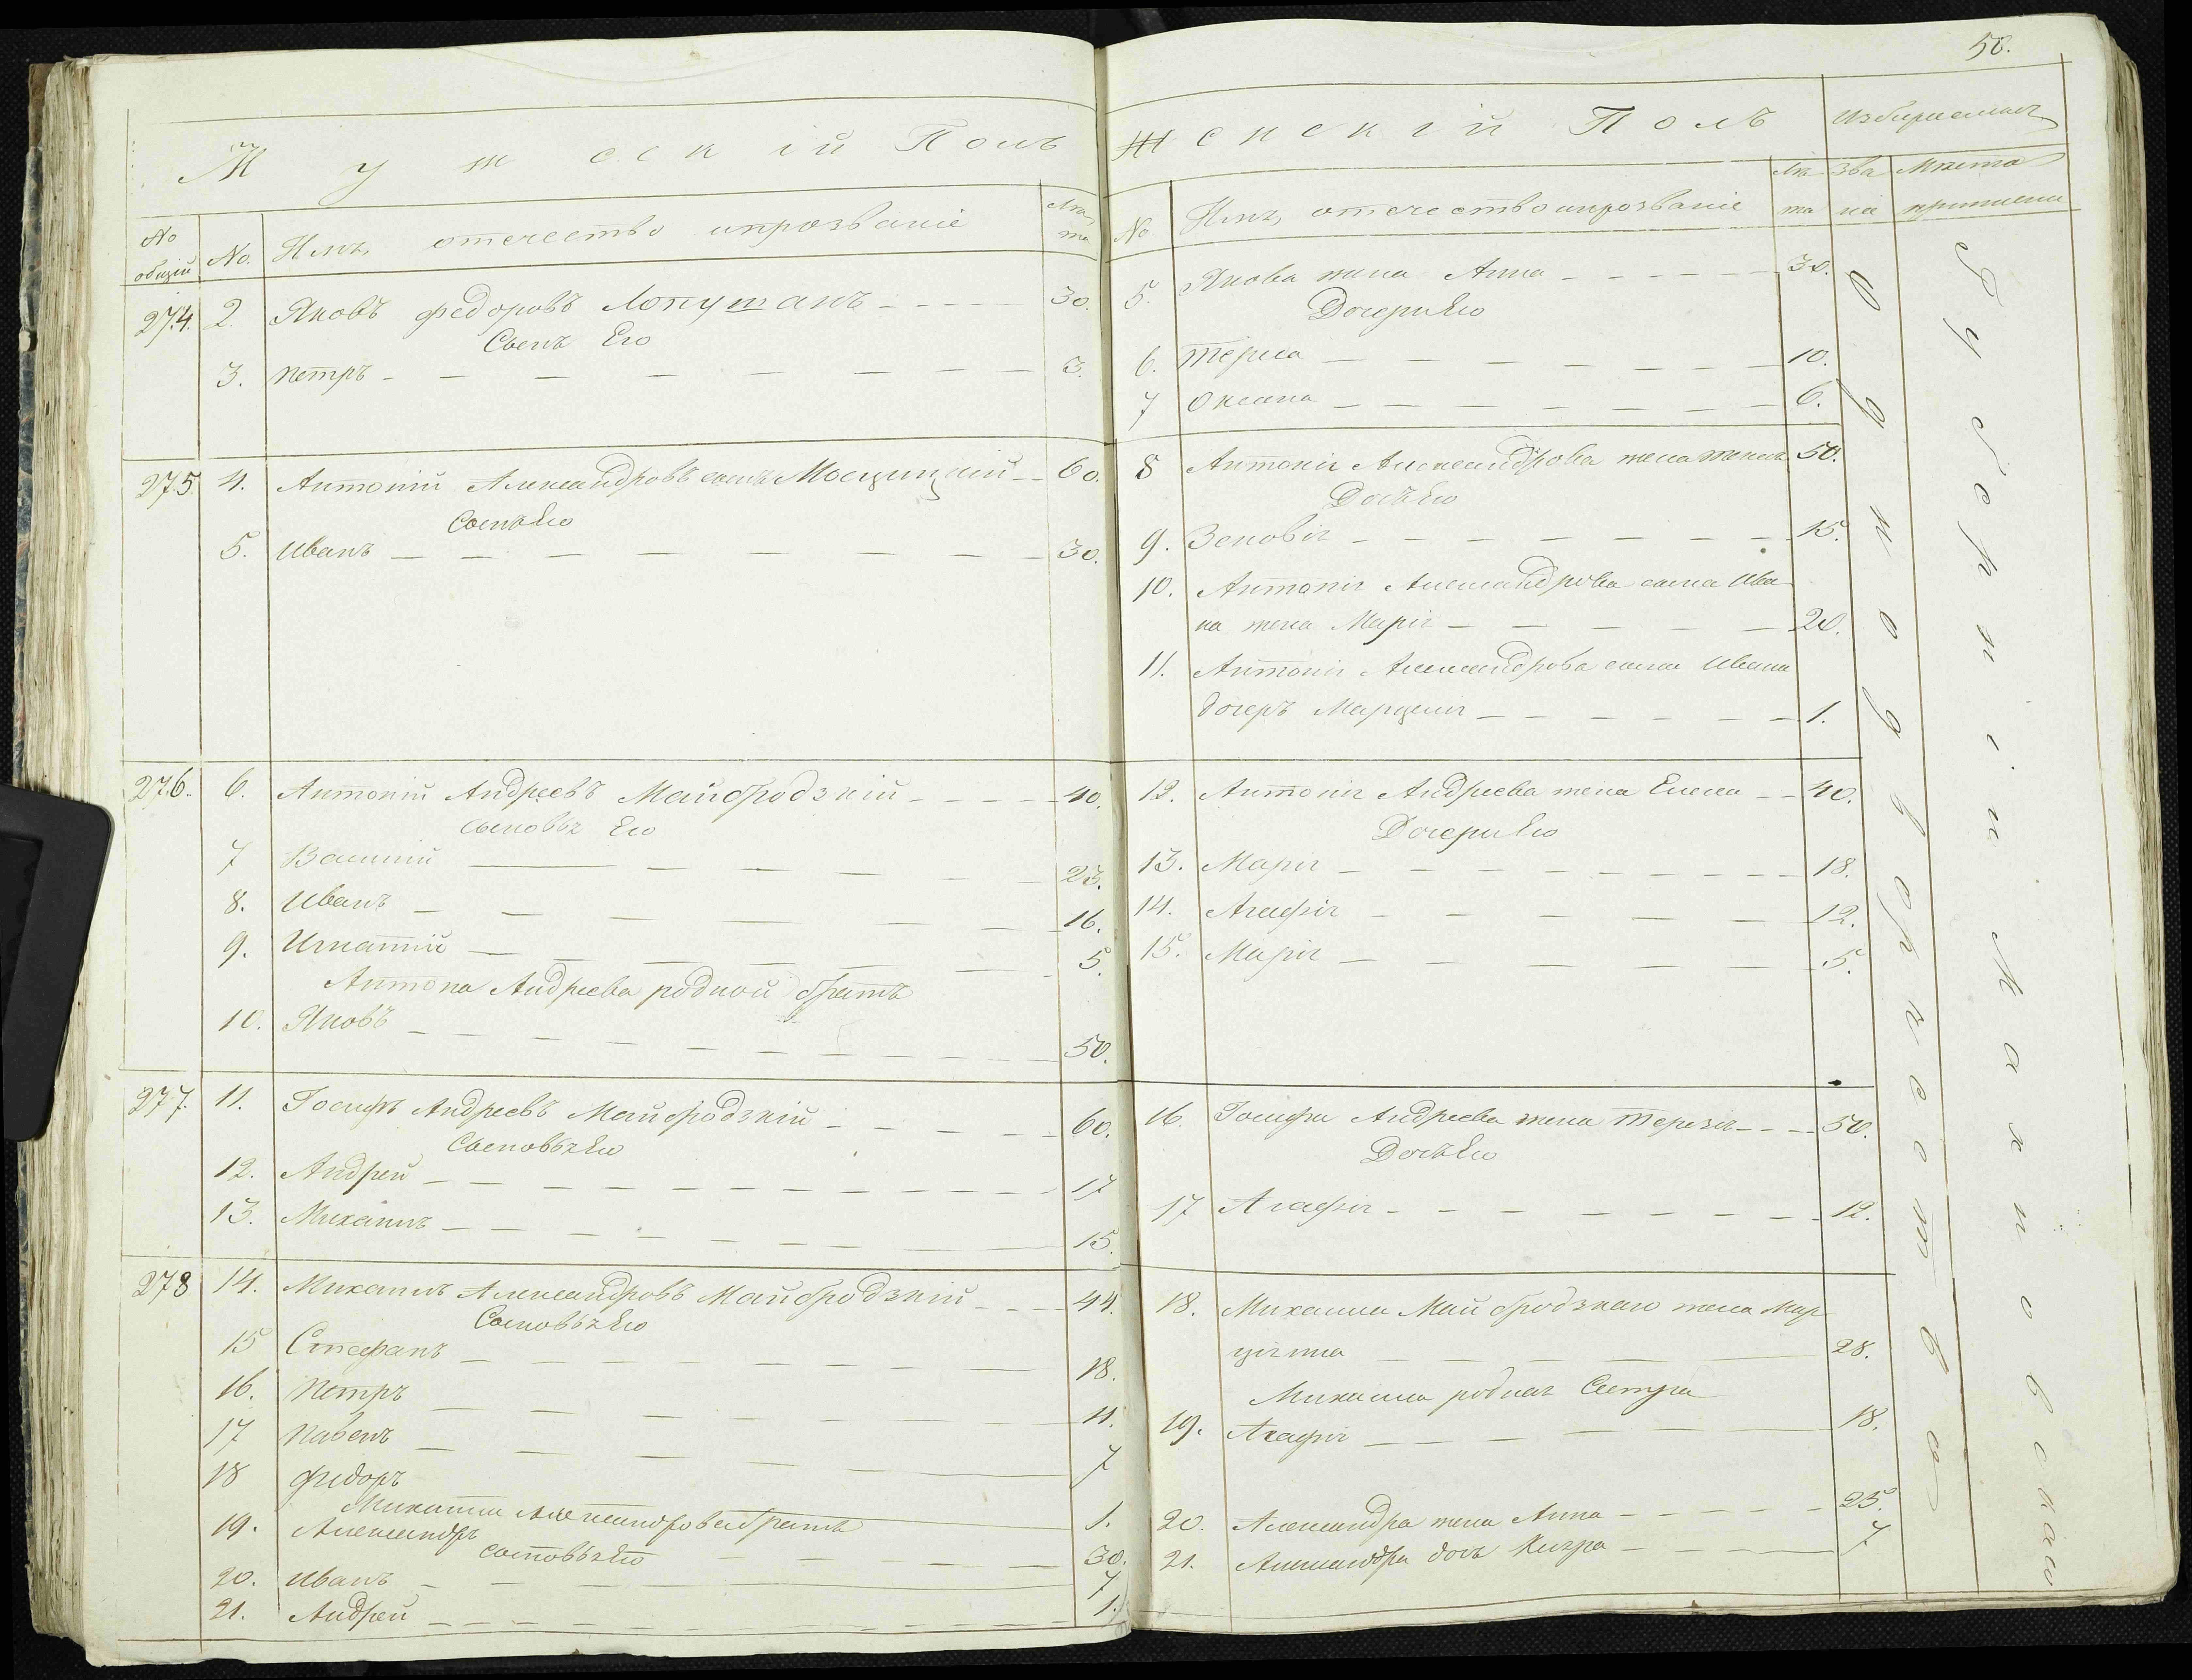 Мужескій Полъ
No общій No. Имя, отечество ипрозваніе Лѣта
274. 2. Яковъ федоровъ Лопушанъ 30.
Сынъ Его
3. Петръ 3.
275 4. Антоній Александровъ сынъ Мосцицкій 60.
Сынъ Его
5. Иванъ 30.
276. 6. Антоній Андреевъ Майбродзкій 40.
Сыновья Его
7 Василій 23.
8. Иванъ 16.
9. Игнатій 5.
Антона Андреева родной братъ
10. Яковъ 50.
277. 11. Іосифъ Андреевъ Майбродзкій 60.
Сыновья Его
12. Андрей 17
13. Михаилъ 15.
278 14. Михаилъ Александровъ Майбродзкій 44.
Сыновья Его
15 Стефанъ 18.
16. Петръ 11.
17 Павелъ 7
18 Федоръ 1.
Михаила Александрова братъ
19. Александръ 30.
Сыновья Его
20. Иванъ 7
21. Андрей 1.
50.
Женскій Полъ
No Имя, отечество ипрозваніе Лѣта Зва нія Мѣста
5. Якова жена Анна 30.
Дочери Его
6. 10.
7 Оксана 6.
8 Антонія Александрова жена 50.
Дочь Его
9. Зеновія 15.
10. Антонія Александрова сына Ива
на жена Марія 20.
11. Антонія Александрова сына Ивана
дочеръ Марцелія 1.
12. Антонія Андреева жена Елена 40.
Дочери Его
13. Марія 18.
14. Агафія 12.
15. Марія 5.
16. Іосифа Андреева жена Терезія 50.
Дочь Его
17 Агафія 12.
18. Михаила Майбродзкаго жена Мар
ціянна 28.
Михаила родная Сестра
19. Агафія 18.
20. Александра жена Анна 25.
21. Александра дочь 7
Однодворческаго
Губерніи Махновскаго